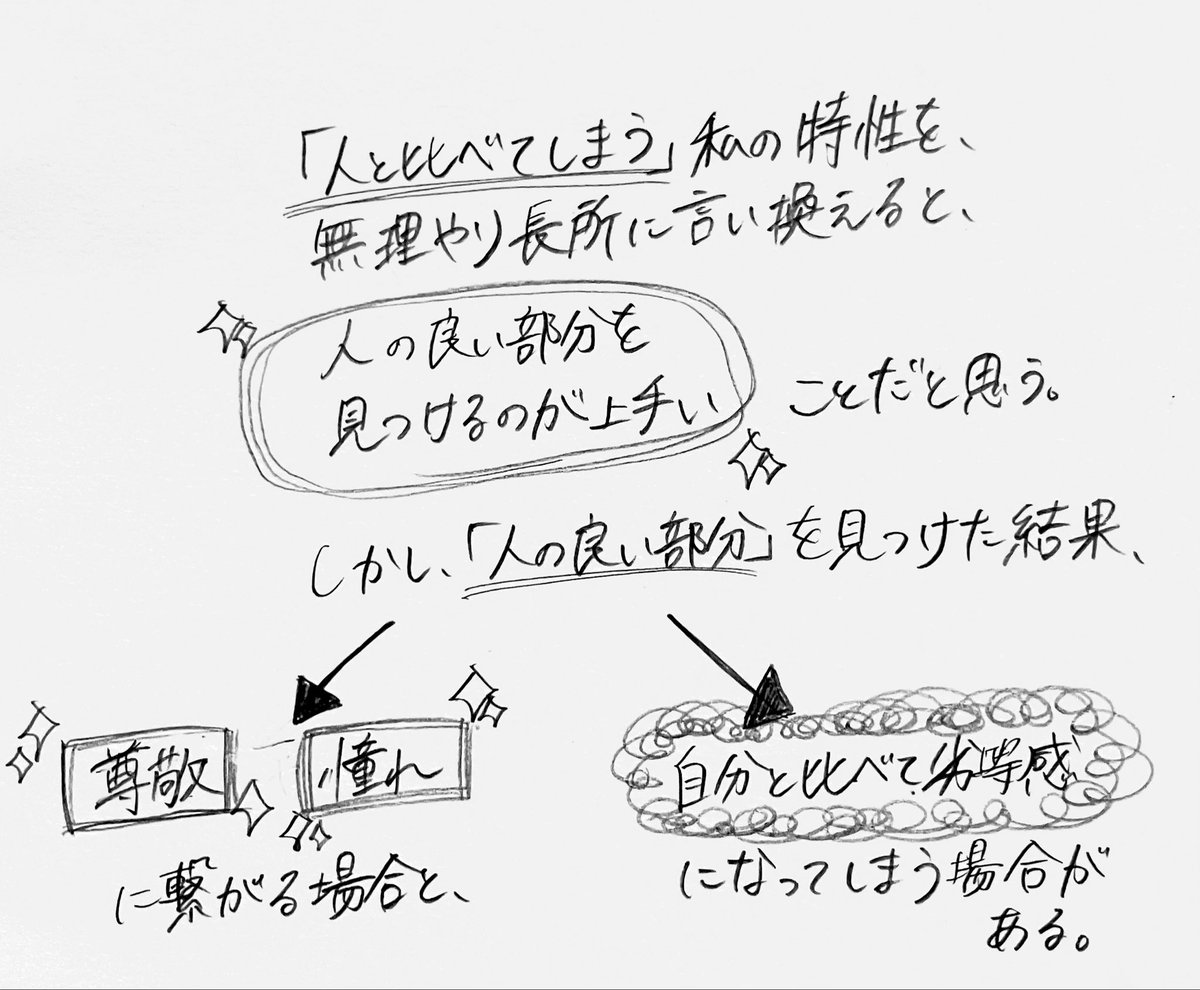 「人と比べてしまう」私の特性を、
無理やり長所に言い換えると、
人の良い部分を
見つけるのが上手い
ことだと思う。
しかし、「人の良い部分」を見つけた結果、
尊敬
憧れ
に繋がる場合と、
自分と比べて劣等感
になってしまう場合が
ある。